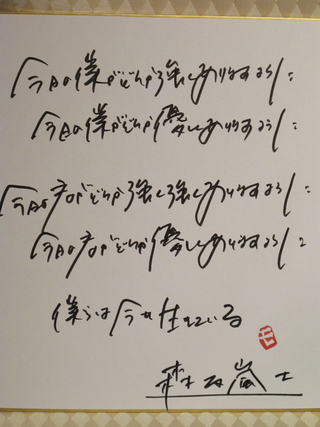 今日の僕がどうか強くありますように
今日の僕がどうか優しくありますように
今日の君がどうか強く強くありますように
今日の君がどうか優しくありますように
僕らは今 生きている
嵐士